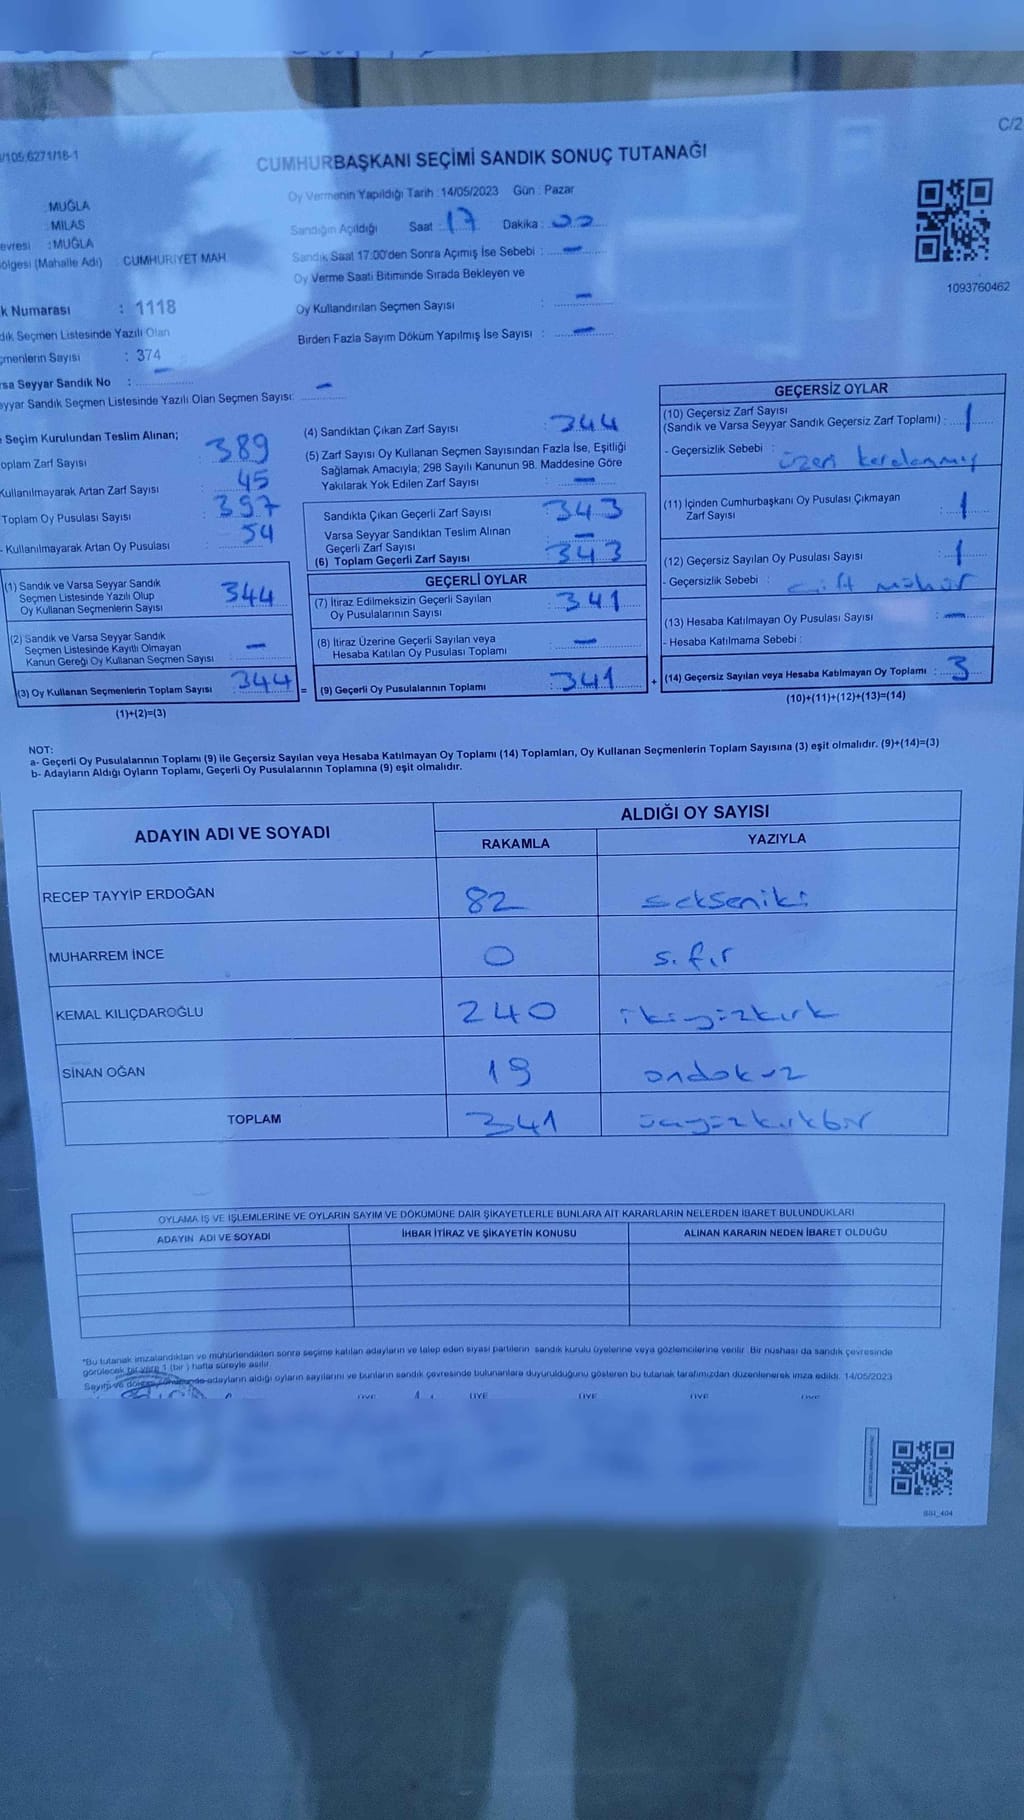 C/2
/105.6271/18-1
CUMHURBAŞKANI SEÇİMİ SANDIK SONUÇ TUTANAĞI
Oy Vermenin Yapıldığı Tarih : 14/05/2023 Gün : Pazar
: MUĞLA
: MİLAS
evresi : MUĞLA
ölgesi (Mahalle Adı) : CUMHURİYET MAH.
Sandığın Açıldığı Saat : 17 Dakika :
Sandık Saat 17:00'den Sonra Açımış İse Sebebi : —
Oy Verme Saati Bitiminde Sırada Bekleyen ve
Oy Kullandırılan Seçmen Sayısı : —
Birden Fazla Sayım Döküm Yapılmış İse Sayısı : —
1093760462
k Numarası : 1118
dık Seçmen Listesinde Yazılı Olan
çmenlerin Sayısı : 374
rsa Seyyar Sandık No : —
eyyar Sandık Seçmen Listesinde Yazılı Olan Seçmen Sayısı: —
e Seçim Kurulundan Teslim Alınan;
oplam Zarf Sayısı : 389
Kullanılmayarak Artan Zarf Sayısı : 45
Toplam Oy Pusulası Sayısı : 397
- Kullanılmayarak Artan Oy Pusulası : 54
(1) Sandık ve Varsa Seyyar Sandık
Seçmen Listesinde Yazılı Olup
Oy Kullanan Seçmenlerin Sayısı : 344
(2) Sandık ve Varsa Seyyar Sandık
Seçmen Listesinde Kayıtlı Olmayan
Kanun Gereği Oy Kullanan Seçmen Sayısı : —
(3) Oy Kullanan Seçmenlerin Toplam Sayısı : 344 =
(1)+(2)=(3)
(4) Sandıktan Çıkan Zarf Sayısı : 344
(5) Zarf Sayısı Oy Kullanan Seçmen Sayısından Fazla İse, Eşitliği
Sağlamak Amacıyla; 298 Sayılı Kanunun 98. Maddesine Göre
Yakılarak Yok Edilen Zarf Sayısı : —
Sandıkta Çıkan Geçerli Zarf Sayısı : 343
Varsa Seyyar Sandıktan Teslim Alınan
Geçerli Zarf Sayısı : —
(6) Toplam Geçerli Zarf Sayısı : 343
GEÇERLİ OYLAR
(7) İtiraz Edilmeksizin Geçerli Sayılan
Oy Pusulalarının Sayısı : 341
(8) İtiraz Üzerine Geçerli Sayılan veya
Hesaba Katılan Oy Pusulası Toplamı : —
(9) Geçerli Oy Pusulalarının Toplamı : 341 +
GEÇERSİZ OYLAR
(10) Geçersiz Zarf Sayısı
(Sandık ve Varsa Seyyar Sandık Geçersiz Zarf Toplamı) : 1
- Geçersizlik Sebebi : üzeri karalanmış
(11) İçinden Cumhurbaşkanı Oy Pusulası Çıkmayan
Zarf Sayısı : 1
(12) Geçersiz Sayılan Oy Pusulası Sayısı : 1
- Geçersizlik Sebebi : çift mühür
(13) Hesaba Katılmayan Oy Pusulası Sayısı : —
- Hesaba Katılmama Sebebi :
(14) Geçersiz Sayılan veya Hesaba Katılmayan Oy Toplamı : 3
(10)+(11)+(12)+(13)=(14)
NOT:
a- Geçerli Oy Pusulalarının Toplamı (9) ile Geçersiz Sayılan veya Hesaba Katılmayan Oy Toplamı (14) Toplamları, Oy Kullanan Seçmenlerin Toplam Sayısına (3) eşit olmalıdır. (9)+(14)=(3)
b- Adayların Aldığı Oyların Toplamı, Geçerli Oy Pusulalarının Toplamına (9) eşit olmalıdır.
ADAYIN ADI VE SOYADI
ALDIĞI OY SAYISI
RAKAMLA YAZIYLA
RECEP TAYYİP ERDOĞAN 82 sekseniki
MUHARREM İNCE 0 sıfır
KEMAL KILIÇDAROĞLU 240 ikiyüzkırk
SİNAN OĞAN 19 ondokuz
TOPLAM 341 üçyüzkırkbir
OYLAMA İŞ VE İŞLEMLERİNE VE OYLARIN SAYIM VE DÖKÜMÜNE DAİR ŞİKAYETLERLE BUNLARA AİT KARARLARIN NELERDEN İBARET BULUNDUKLARI
ADAYIN ADI VE SOYADI İHBAR İTİRAZ VE ŞİKAYETİN KONUSU ALINAN KARARIN NEDEN İBARET OLDUĞU
*Bu tutanak imzalandıktan ve mühürlendikten sonra seçime katılan adayların ve talep eden siyasi partilerin sandık kurulu üyelerine veya gözlemcilerine verilir. Bir nüshası da sandık çevresinde
görülecek bir yere 1 (bir) hafta süreyle asılır.
Sayım ve döküm sonucunda adayların aldığı oyların sayılarını ve bunların sandık çevresinde bulunanlara duyurulduğunu gösteren bu tutanak tarafımızdan düzenlenerek imza edildi. 14/05/2023
ÜYE ÜYE ÜYE ÜYE